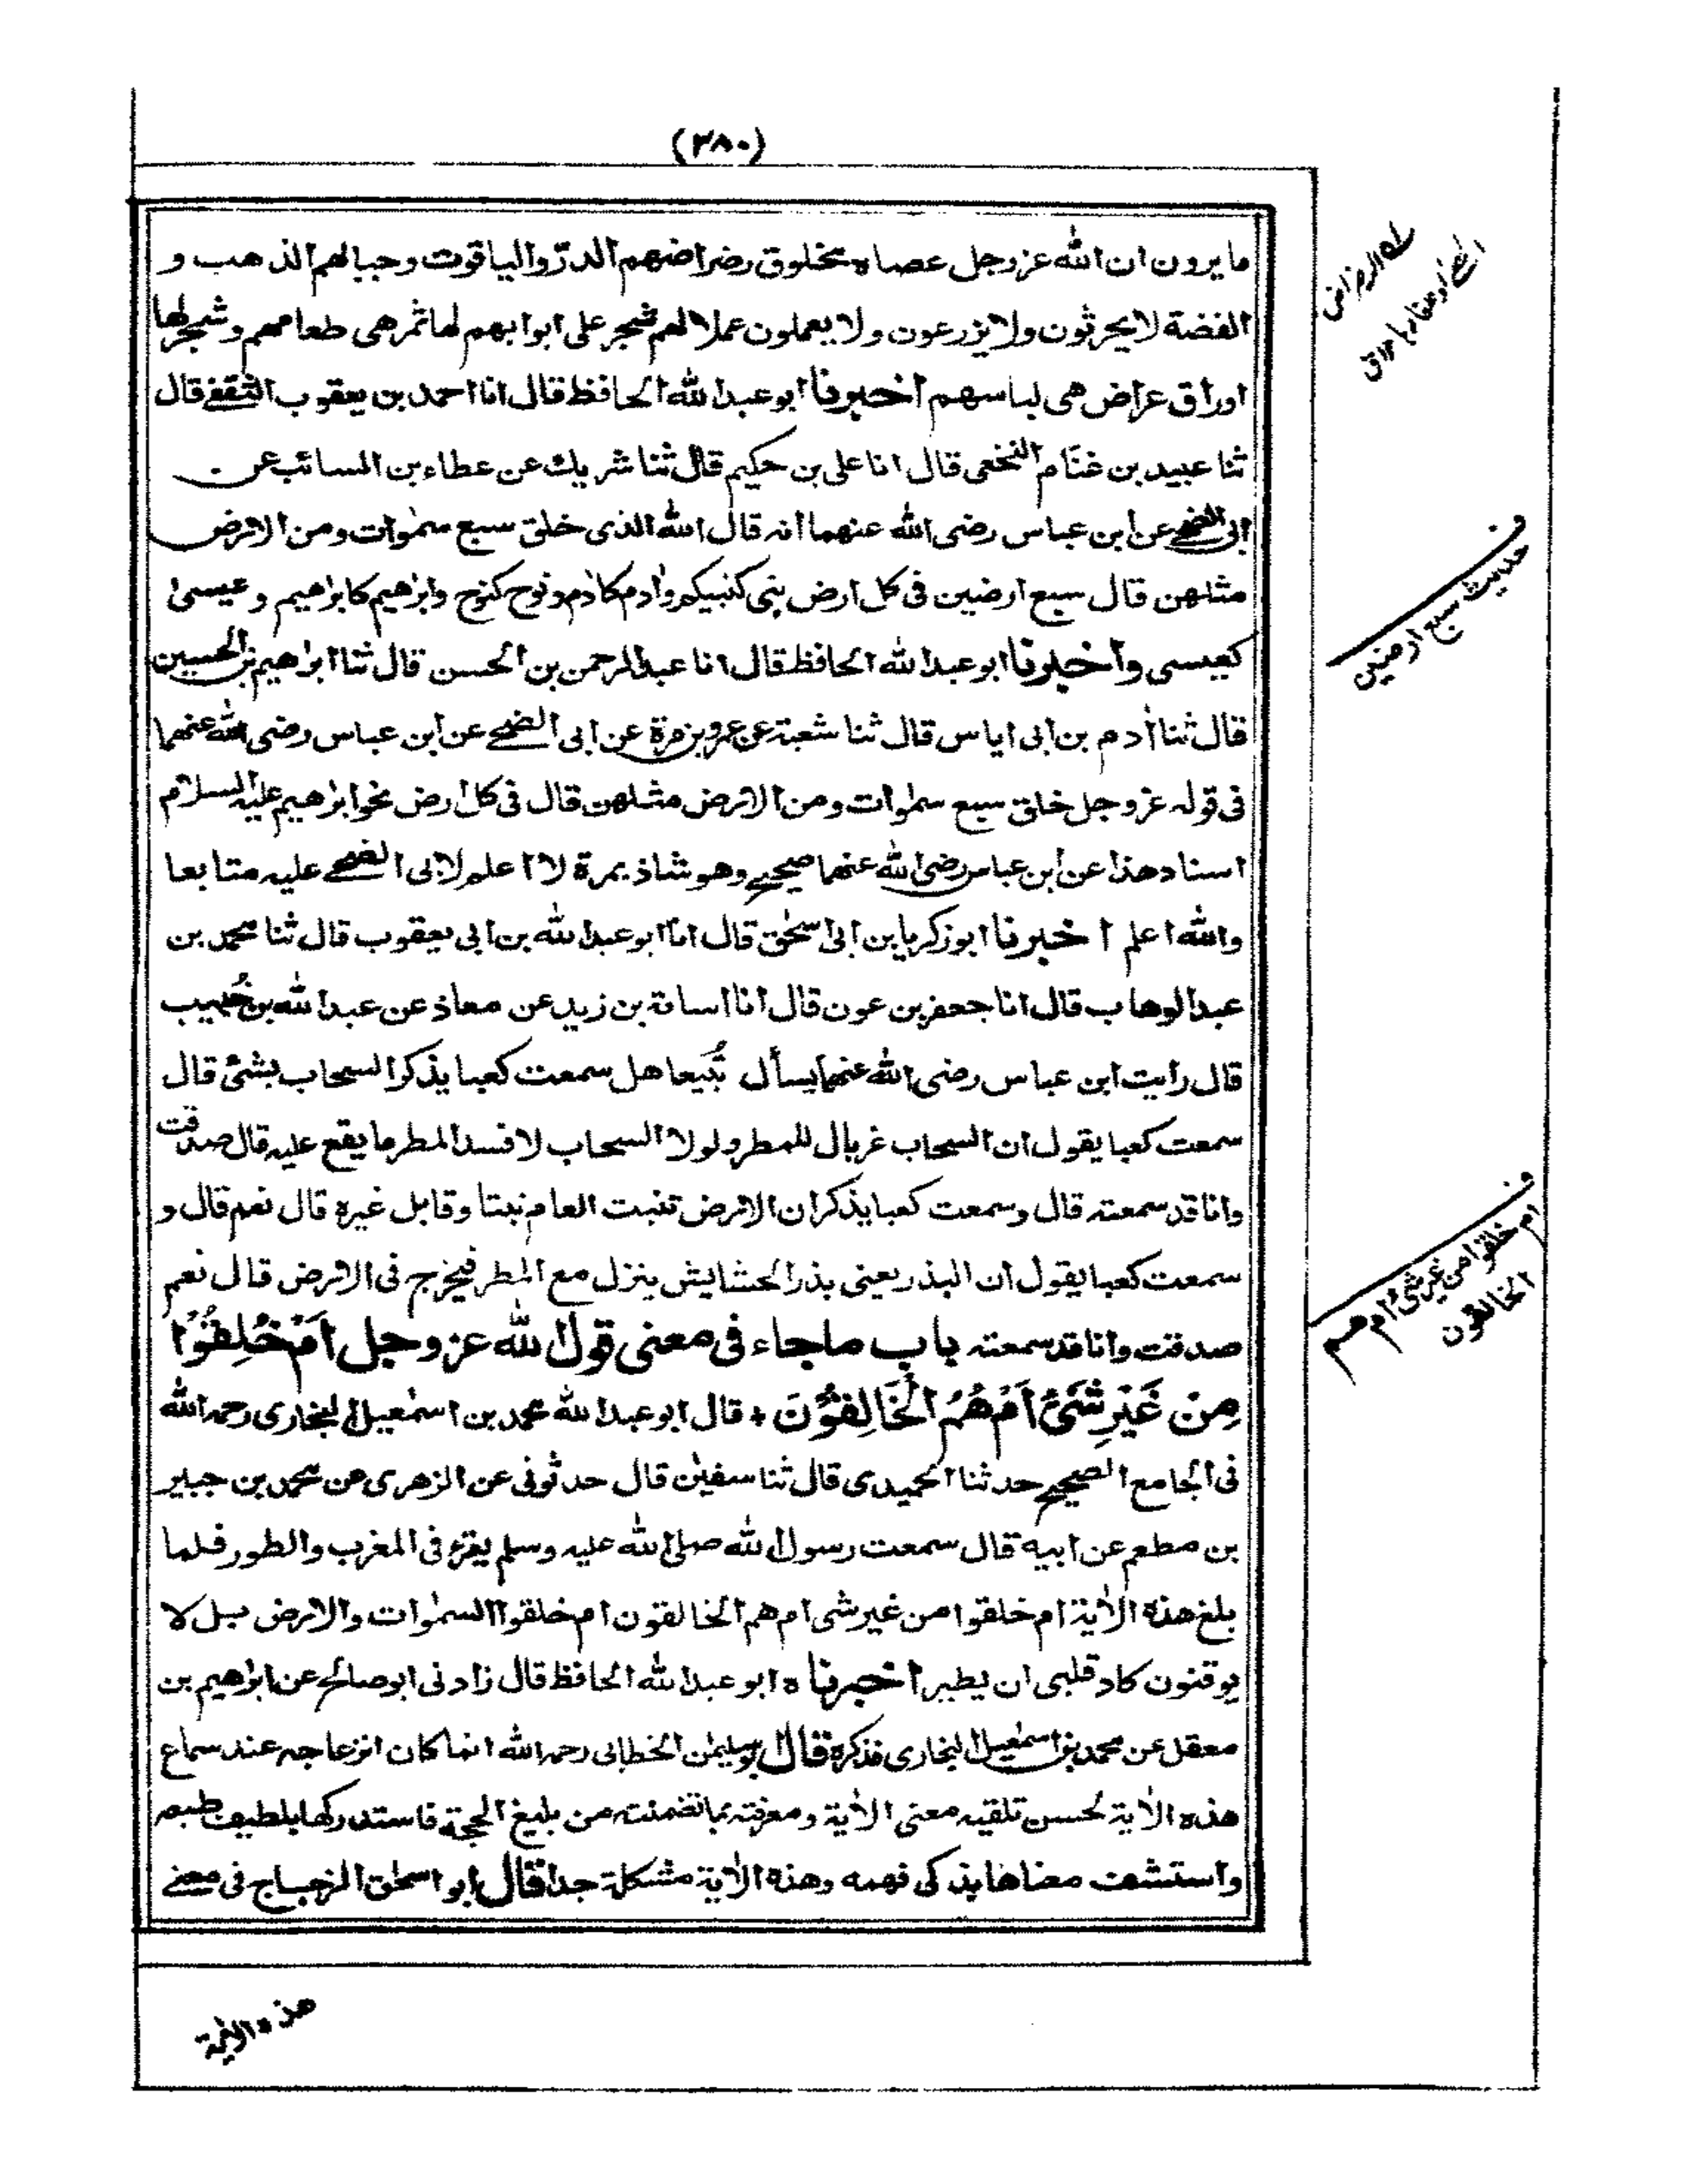 (٣٨٠)
ما يرون ان الله عز وجل عصاه مخلوق رضراضهم الدرّ والياقوت وجبالهم الذهب و
الفضة لا يحرثون ولا يزرعون ولا يعملون عملا لهم شجر على ابوابهم لها ثمر هي طعامهم وشجر لها
اوراق عراض هي لباسهم اخبرنا ابو عبد الله الحافظ قال انا احمد بن يعقوب الثقفي قال
ثنا عبيد بن غنّام النخعي قال انا علي بن حكيم قال ثنا شريك عن عطاء بن السائب عن
ابي الضحى عن ابن عباس رضي الله عنهما انه قال الله الذي خلق سبع سمٰوات ومن الارض
مثلهن قال سبع ارضين في كل ارض نبي كنبيكم وأدم كأدم ونوح كنوح وابرٰهيم كابرٰهيم وعيسىٰ
كعيسى واخبرنا ابو عبد الله الحافظ قال انا عبد الرحمن بن الحسن قال ثنا ابراهيم بن الحسين
قال ثنا أدم بن ابي اياس قال ثنا شعبة عن عمرو بن مرة عن ابي الضحى عن ابن عباس رضي الله عنهما
في قوله عز وجل خلق سبع سمٰوات ومن الارض مثلهن قال في كل ارض نحو ابرٰهيم عليه السلام
اسناد هذا عن ابن عباس رضي الله عنهما صحيح وهو شاذ بمرة لا اعلم لابي الضحى عليه متابعا
والله اعلم اخبرنا ابو زكريا بن ابي اسحٰق قال انا ابو عبد الله بن ابي يعقوب قال ثنا محمد بن
عبد الوهاب قال انا جعفر بن عون قال انا اسامة بن زيد عن معاذ عن عبد الله بن خُبيب
قال رايت ابن عباس رضي الله عنهما يسأل تُبيعا هل سمعت كعبا يذكر السحاب بشئ قال
سمعت كعبا يقول ان السحاب غربال للمطر ولولا السحاب لافسد المطر ما يقع عليه قال صدقت
وانا قد سمعته قال وسمعت كعبا يذكر ان الارض تنبت العام نبتا وقابل غيره قال نعم قال و
سمعت كعبا يقول ان البذر يعني بذر الحشايش ينزل مع المطر فيخرج في الارض قال نعم
صدقت وانا قد سمعته باب ماجاء في معنى قول الله عز وجل اَمْ خُلِقُوْا
مِنْ غَيْرِ شَيْئٍ اَمْ هُمُ الْخَالِقُوْنَ + قال ابو عبد الله محمد بن اسمٰعيل البخاري رحمه الله
في الجامع الصحيح حدثنا الحميدي قال ثنا سفيٰن قال حدثوني عن الزهري عن محمد بن جبير
بن مطعم عن ابيه قال سمعت رسول الله صلى الله عليه وسلم يقرء في المغرب والطور فلما
بلغ هذه الأية ام خلقوا من غير شي ام هم الخالقون ام خلقوا السمٰوات والارض بل لا
يوقنون كاد قلبي ان يطير اخبرناه ابو عبد الله الحافظ قال زادني ابو صالح عن ابرٰهيم بن
معقل عن محمد بن اسمٰعيل البخاري فذكره قال ابو سليمٰن الخطابي رحمه الله انما كان انزعاجه عند سماع
هذه الأية لحسن تلقيه معنى الأية ومعرفته بما تضمنته من بليغ الحجة فاستدركها بلطيف طبعه
واستشف معناها بذكي فهمه وهذه الأية مشكلة جدا قال ابو اسحٰق الزجاج في معنى
ف
حديث سبع ارضين
ف
ام خلقوا من غير شئ ام هم
الخالقون
هذه الأية